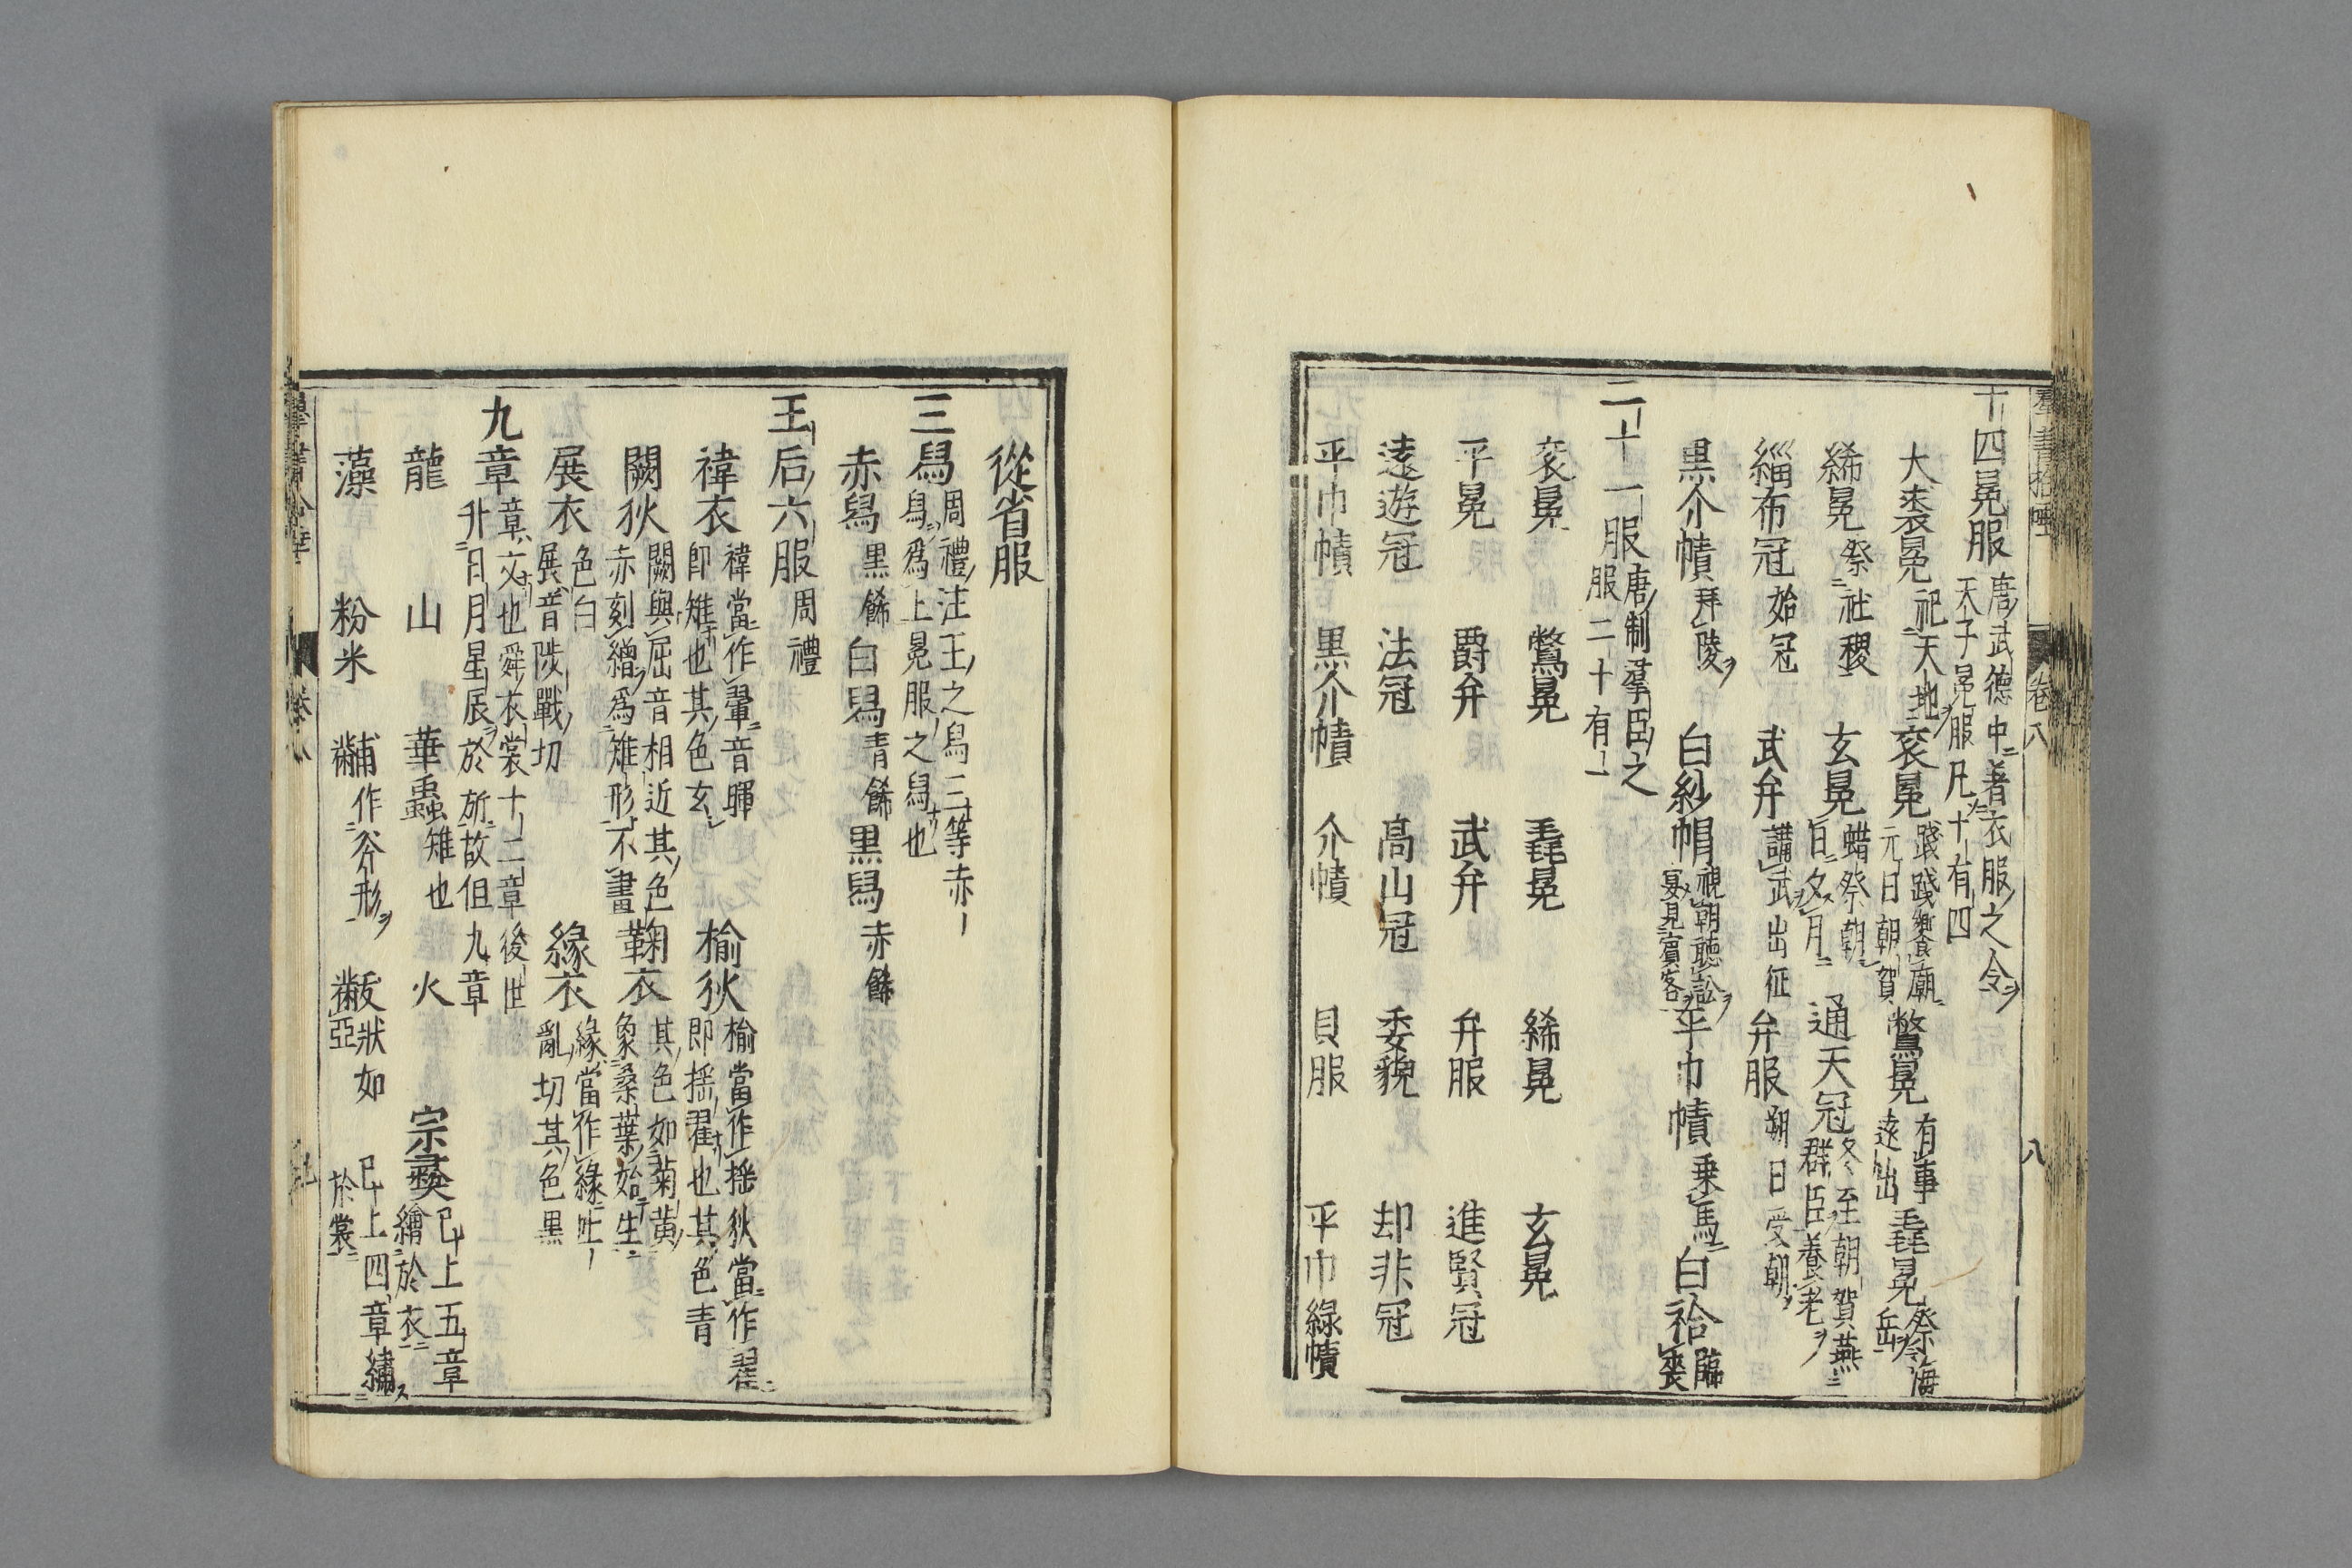 十四冕服 唐武德中著衣服之令
天子冕服凡十有四
大裘冕 祀天地 衮冕 踐祚饗廟元日朝賀 鷩冕 有事遠出 毳冕 祭海岳
絺冕 祭社稷 玄冕 蜡祭朝日夕月 通天冠 冬至朝賀燕群臣養老
緇布冠 始冠 武弁 講武出征 弁服 朔日受朝
黒介幘 拜陵 白紗帽 視朝聽訟宴見賓客 平巾幘 乗馬 白袷 臨喪
二十一服 唐制羣臣之服二十有一
衮冕 鷩冕 毳冕 絺冕 玄冕
平冕 爵弁 武弁 弁服 進賢冠
遠遊冠 法冠 髙山冠 委貌 却非冠
平巾幘 黒介幘 介幘 具服 平巾綠幘
卷八 八
從省服
三舄 周禮注王之舄三等赤舄爲上冕服之舄也
赤舄 黒餙 白舄 青餙 黒舄 赤餙
王后六服 周禮
褘衣 褘當作翬音暉即雉也其色玄 揄狄 揄當作揺狄當作翟即揺翟也其色青
闕狄 闕與屈音相近其色赤刻繒爲雉形不畫 鞠衣 其色如菊黄象桑葉始生
展衣 色白展音陟戰切 緣衣 緣當作緣吐亂切其色黒
九章 章文也舜衣裳十二章後世升日月星辰於旂故但九章
龍 山 華蟲 雉也 火 宗彛 已上五章繪於衣
藻 粉米 黼 作斧形 黻 狀如亞 已上四章繡於裳
卷八